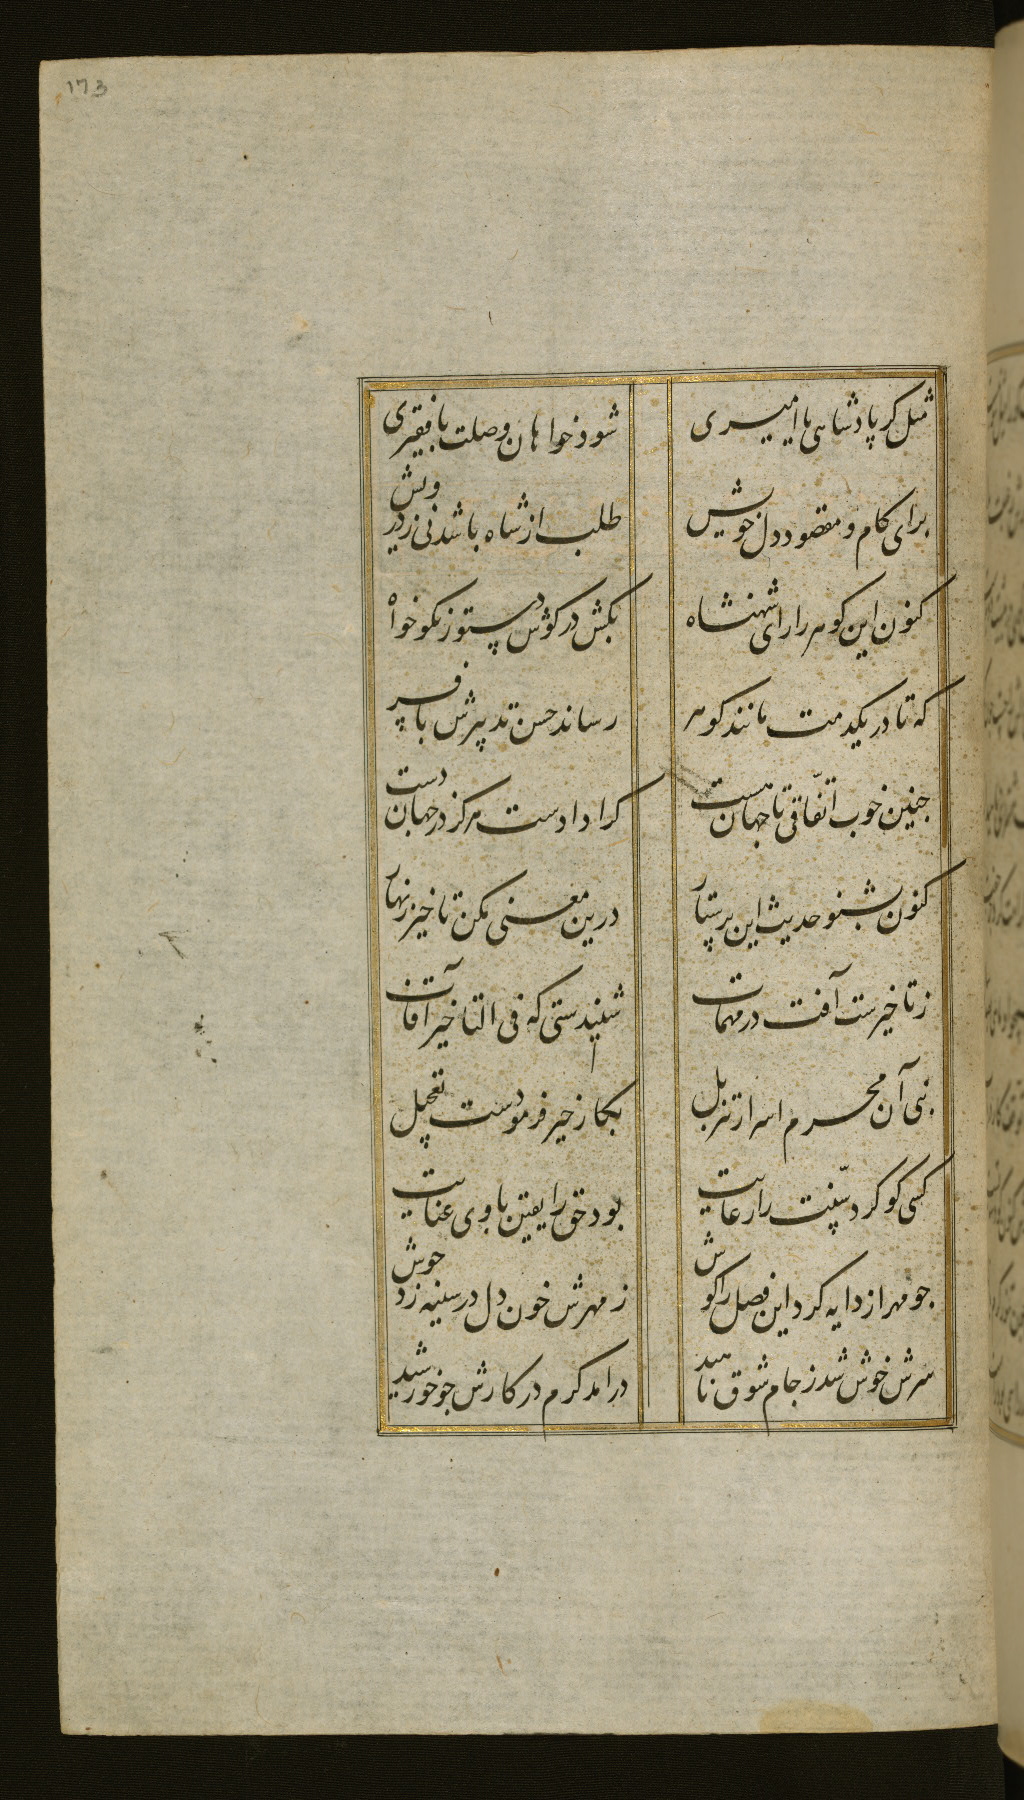 173
مثل گر پادشاهی یا امیری
شود خواهان وصلت با فقیری
برای کام و مقصود دل خویش
طلب از شاه باشد نی ز درویش
کنون این گوهر رارای شهنشاه
بکش در گوش دستور نکوخواه
که تا در یکدمت مانند گوهر
رساند حسن تدبیرش بافسر
چنین خوب اتفاقی تا جهان هست
کرا دادست هرگز در جهان دست
کنون بشنو حدیث این پرستار
درین معنی مکن تاخیر زنهار
ز تاخیرست آفت در مهمات
شنیدستی که فی التاخیر آفات
نبی آن محرم اسرار تنزیل
بکار خیر فرمودست تعجیل
کسی کو کرد سنت را رعایت
بود حق را یقین با وی عنایت
چو مهر از دایه کرد این فصل را گوش
ز مهرش خون دل در سینه زد جوش
سرش خوش شد ز جام شوق ناهید
درامد گرم در کارش چو خورشید